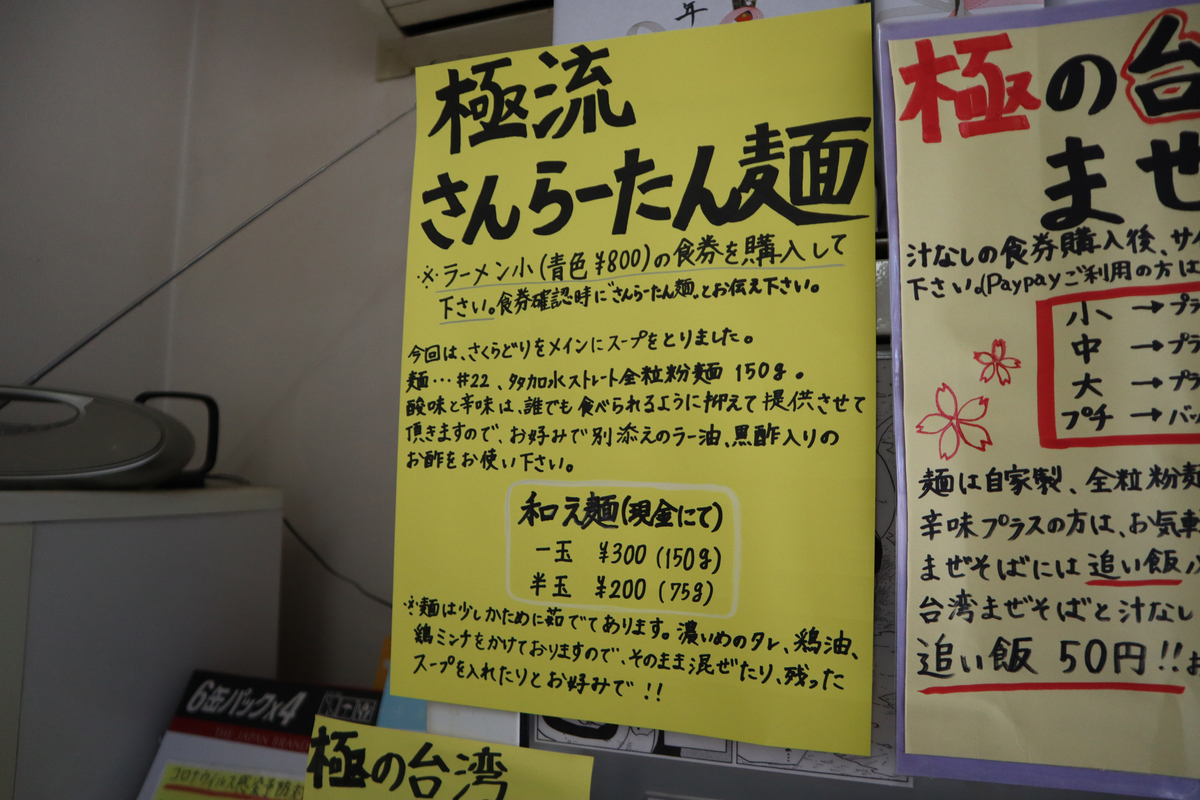 年
極流
さんらーたん麺
※ラーメン小(青色¥800)の食券を購入して
下さい。食券確認時に"さんらーたん麺"とお伝え下さい。
今回は、さくらどりをメインにスープをとりました。
麺…#22、多加水ストレート全粒粉麺 150g。
酸味と辛味は、誰でも食べられるように抑えて提供させて
頂きますので、お好みで別添えのラー油、黒酢入りの
お酢をお使い下さい。
和え麺(現金にて)
一玉 ¥300 (150g)
半玉 ¥200 (75g)
※麺は少しかために茹でてあります。濃いめのタレ、鶏油、
鶏ミンチをかけておりますので、そのまま混ぜたり、残った
スープを入れたりとお好みで!!
極の台
ませ
汁なしの食券購入後、サイ
下さい。(Paypayご利用の方は
小→プラ
中→プラ
大→プラ
プチ→バッ
麺は自家製、全粒粉麺
辛味プラスの方は、お気軽
まぜそばには追い飯
台湾まぜそばと汁なし
追い飯 50円!!お
6缶パック×4
THE JAPAN BRAND
コロナウイルス感染予防対
極の台湾